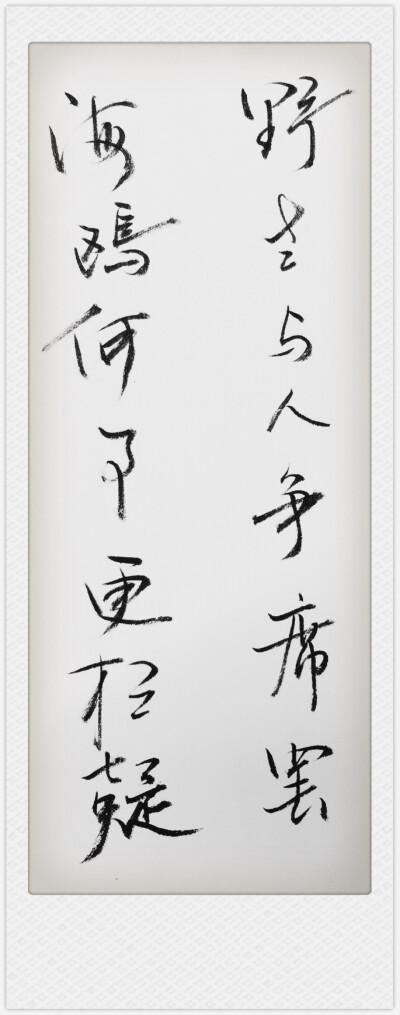 野老与人争席罢
海鸥何事更相疑